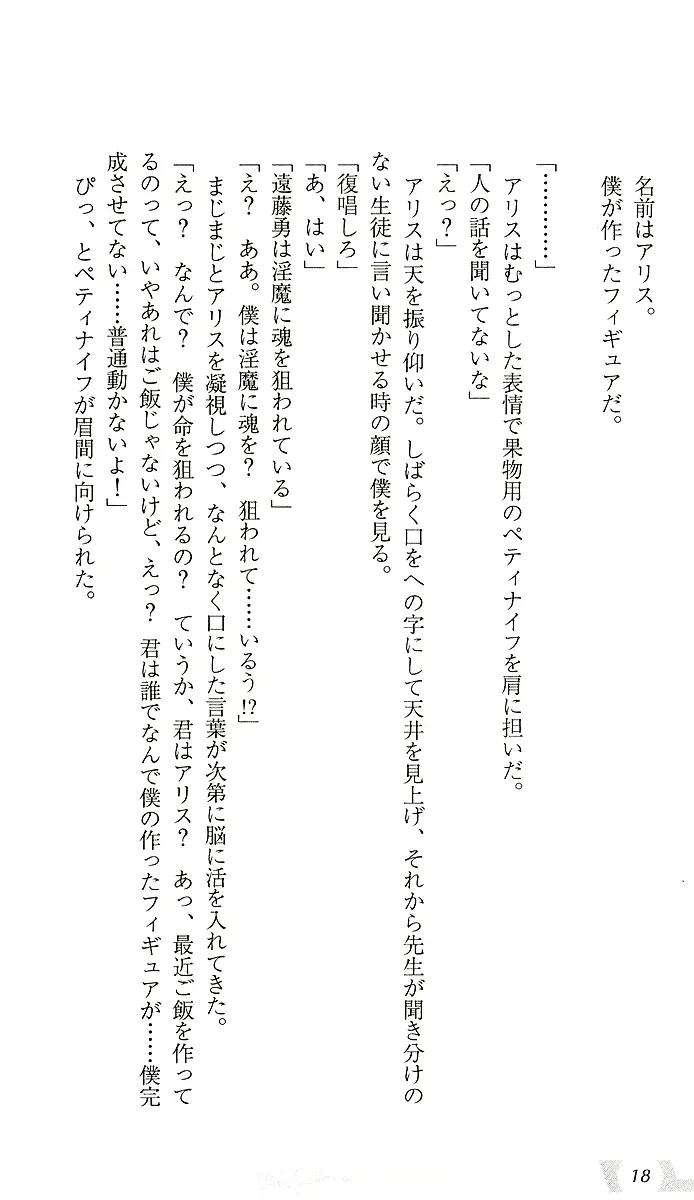 名前はアリス。
僕が作ったフィギュアだ。
「…………」
アリスはむっとした表情で果物用のペティナイフを肩に担いだ。
「人の話を聞いてないな」
「えっ？」
アリスは天を振り仰いだ。しばらく口をへの字にして天井を見上げ、それから先生が聞き分けの
ない生徒に言い聞かせる時の顔で僕を見る。
「復唱しろ」
「あ、はい」
「遠藤勇は淫魔に魂を狙われている」
「え？　ああ。僕は淫魔に魂を？　狙われて……いるう!?」
まじまじとアリスを凝視しつつ、なんとなく口にした言葉が次第に脳に活を入れてきた。
「えっ？　なんで？　僕が命を狙われるの？　ていうか、君はアリス？　あっ、最近ご飯を作って
るのって、いやあれはご飯じゃないけど、えっ？　君は誰でなんで僕の作ったフィギュアが……僕完
成させてない……普通動かないよ！」
ぴっ、とペティナイフが眉間に向けられた。
18